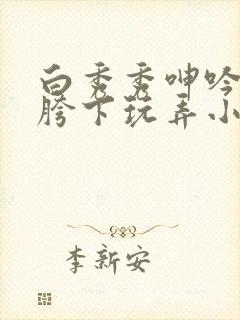 白秀秀呻吟
胯下玩弄小
李新安